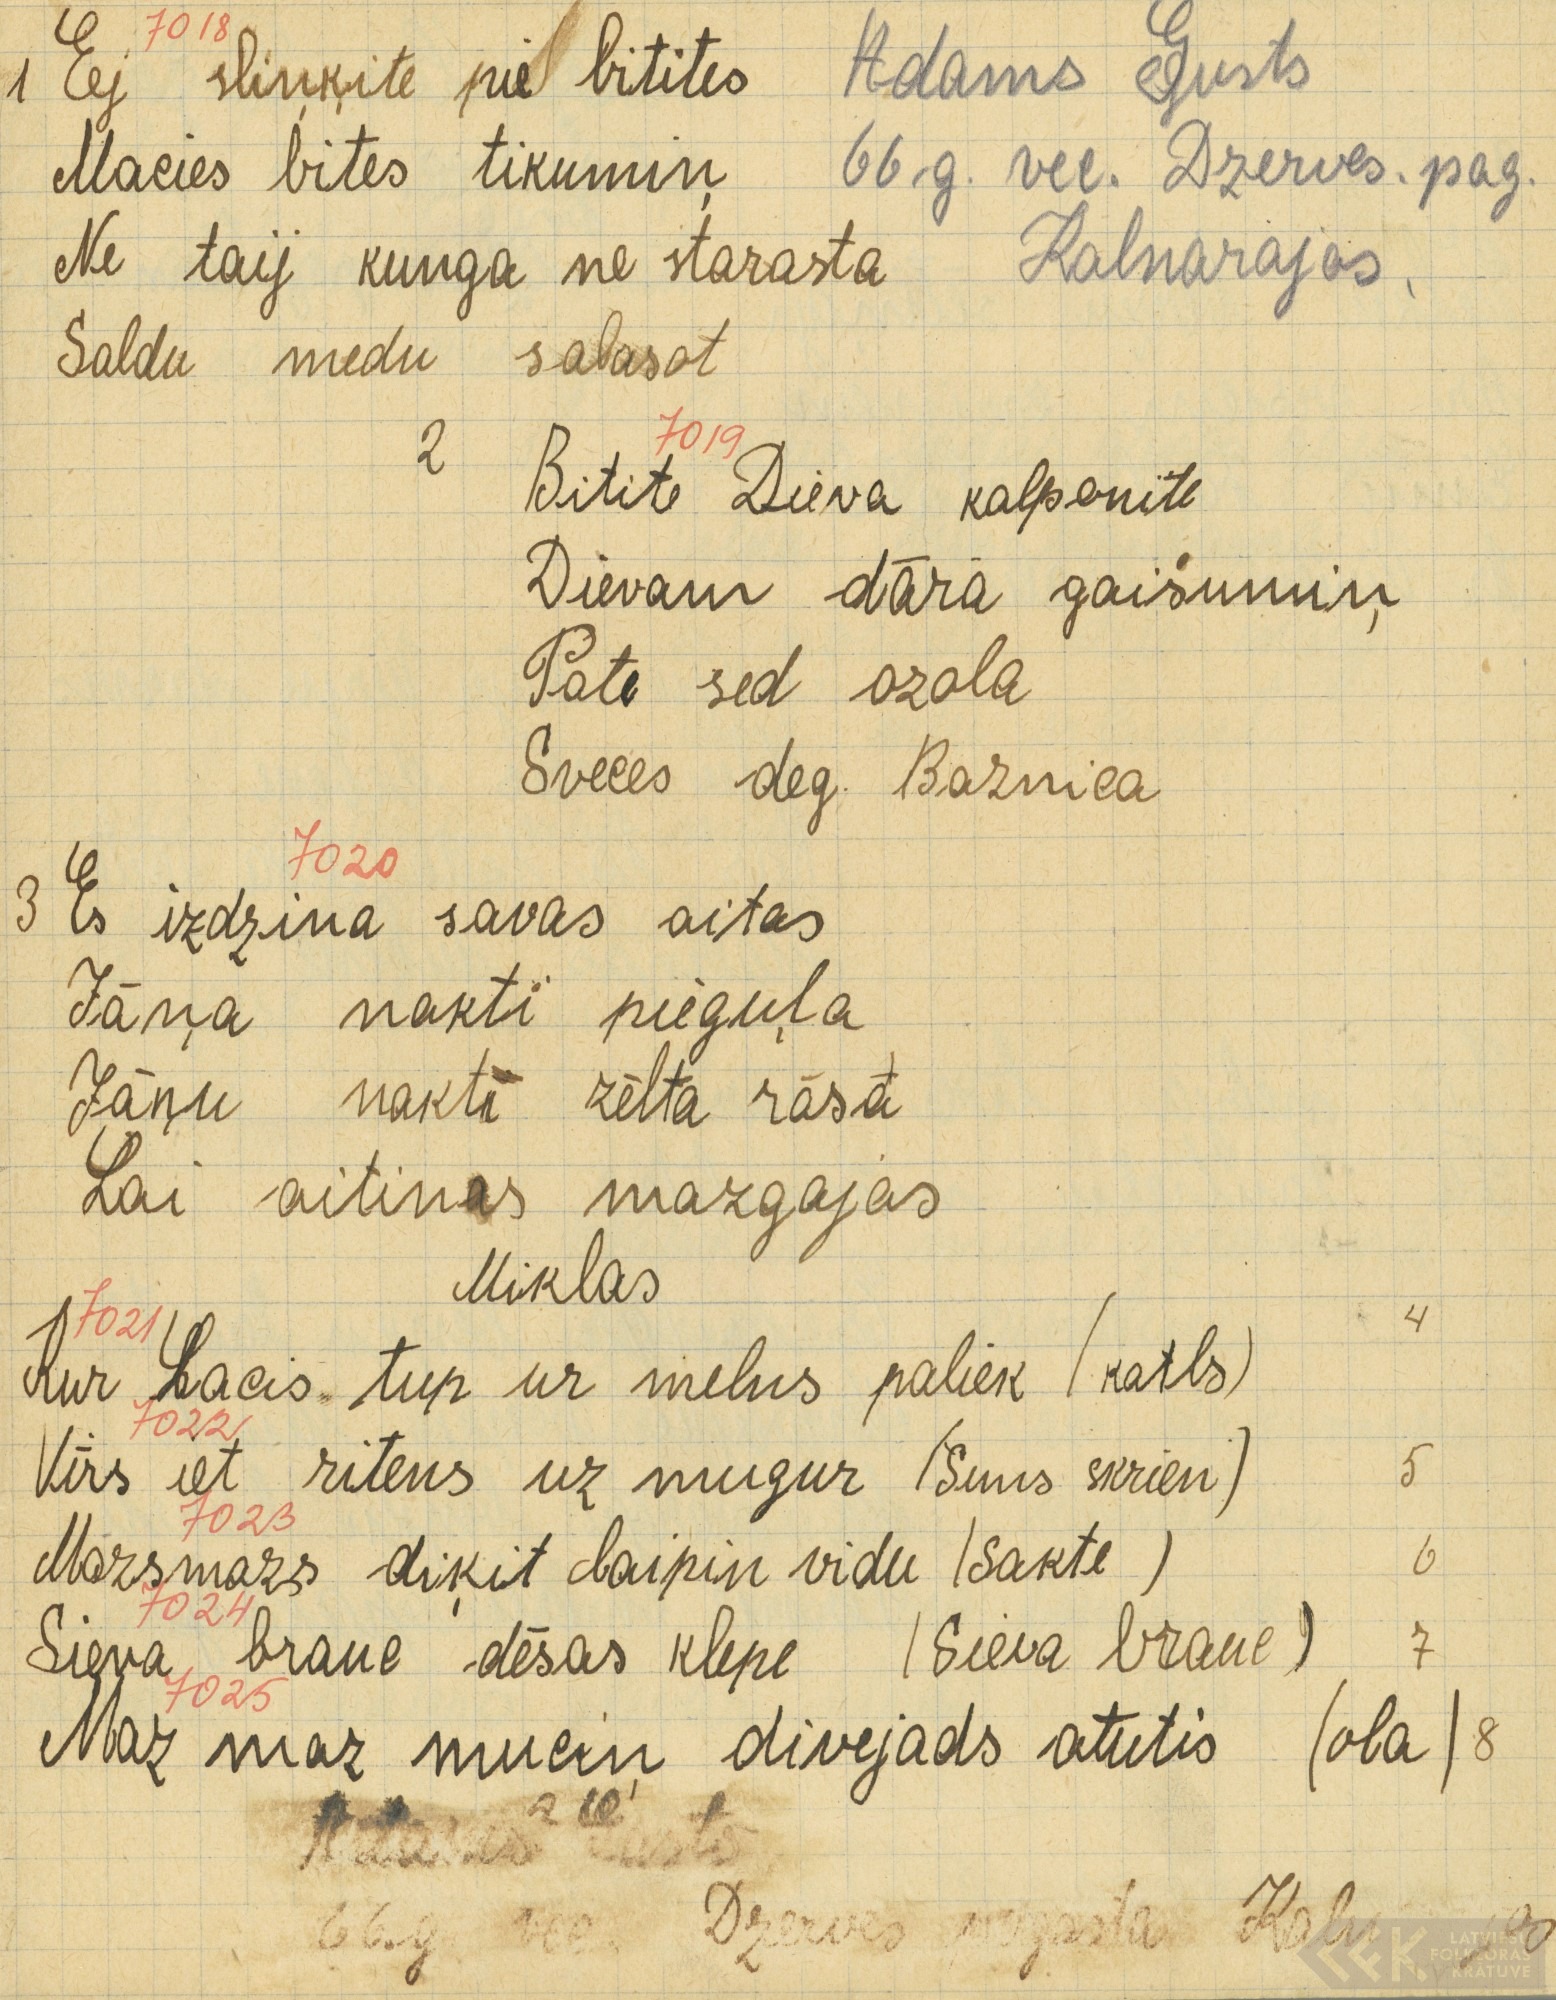 7018
1 Ej sliņķite pie bitites Adams Gusts
Macies bites tikumiņ 66.g. vec. Dzerves. pag.
Ne taij kunga ne starasta Kalnarajas,
Saldu medu salasot
7019
2 Bitite Dieva kalponite
Dievam dārā gaišumiņ
Pate sed ozola
Sveces deg. Baznica
7020
3 Es izdzina savas aitas
Jāņa naktī pieguļa
Jāņu naktī zēlta rāsā
Lai aitinas mazgajās
Miklas
7021
Kur Lacis tup ur melns paliek (katls) 4
7022
Vīrs iet ritens uz mugur (Suns skrien) 5
7023
Mazsmazs diķit laipin vidu (Sakte) 6
7024
Sieva brauc dēsas klepe (Sieva brauc) 7
7025
Maz maz muciņ divejads atutis (ola) 8
66.g vec. Dzerves pagasta
LATVIEŠU
FOLKLORAS
KRĀTUVE